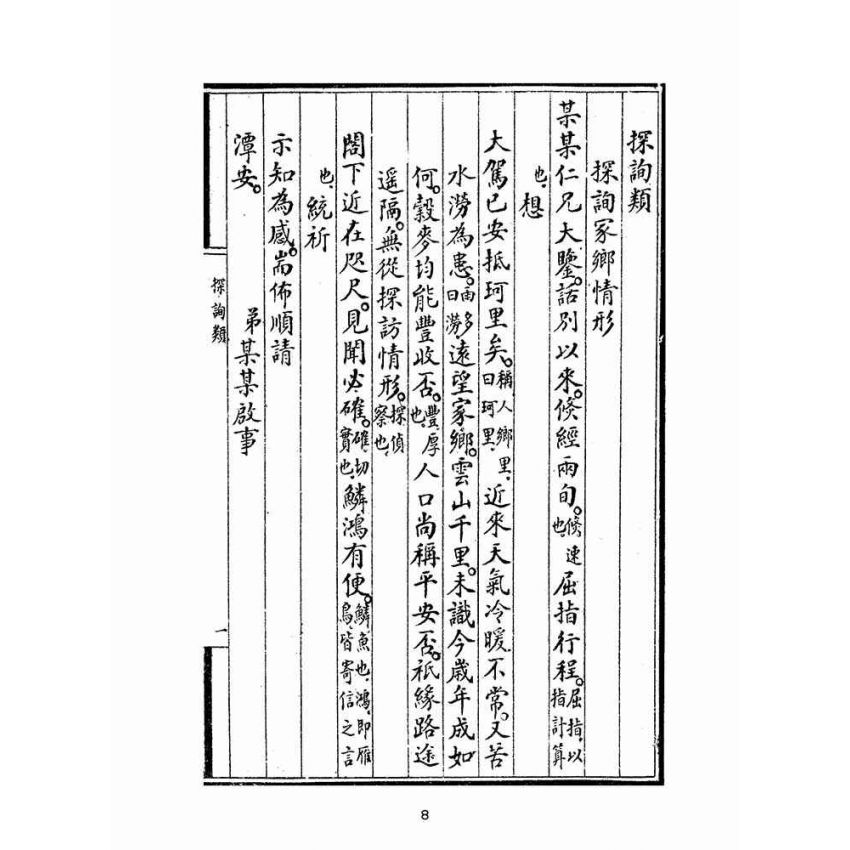 探詢類
探詢家鄉情形
某某仁兄大鑒。話別以來。倐經兩旬。倐、速也、屈指行程。屈指、以指計算
也、想
大駕已安抵珂里矣。稱人鄉里、曰珂里、近來天氣冷暖不常。又苦
水澇為患。雨多曰澇、遠望家鄉。雲山千里。未識今歲年成如
何。穀麥均能豐收否。豐、厚也、人口尚稱平安否。祇緣路途
遥隔。無從探訪情形。探偵察也、
閤下近在咫尺。見聞必確。確、切實也、鱗鴻有便。鱗、魚也、鴻、即雁鳥、皆寄信之言
也、統祈
示知為感。耑佈順請
潭安。
弟某某啟事
探詢類
一
8